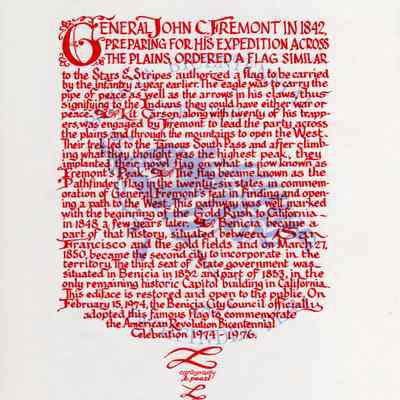 GENERAL JOHN C. FREMONT IN 1842,
PREPARING FOR HIS EXPEDITION ACROSS
THE PLAINS, ORDERED A FLAG SIMILAR
to the Stars & Stripes authorized a flag to be carried
by the infantry a year earlier. The eagle was to carry the
pipe of peace as well as the arrows in his claws, thus
signifying to the Indians they could have either war or
peace. Kit Carson, along with twenty of his trapp-
ers, was engaged by Fremont to lead the party across
the plains and through the mountains to open the West.
Their trek led to the famous South Pass and after climb-
ing what they thought was the highest peak, they
implanted their novel flag on what is now known as
Fremont's Peak. This flag became known as the
Pathfinder flag in the twenty-six states in commem-
oration of General Fremont's feat in finding and open-
ing a path to the West. This pathway was well marked
with the beginnings of the Gold Rush to California
in 1848, a few years later. Benicia became a
part of that history, situated between San
Francisco and the gold fields and on March 27,
1850, became the second city to incorporate in the
territory. The third seat of State government was
situated in Benicia in 1852 and part of 1853, in the
only remaining historic Capitol building in California.
This ediface is restored and open to the public. On
February 15, 1974, the Benicia City Council officially
adopted this famous flag to commemorate
the American Revolution Bicentennial
Celebration 1974-1976.